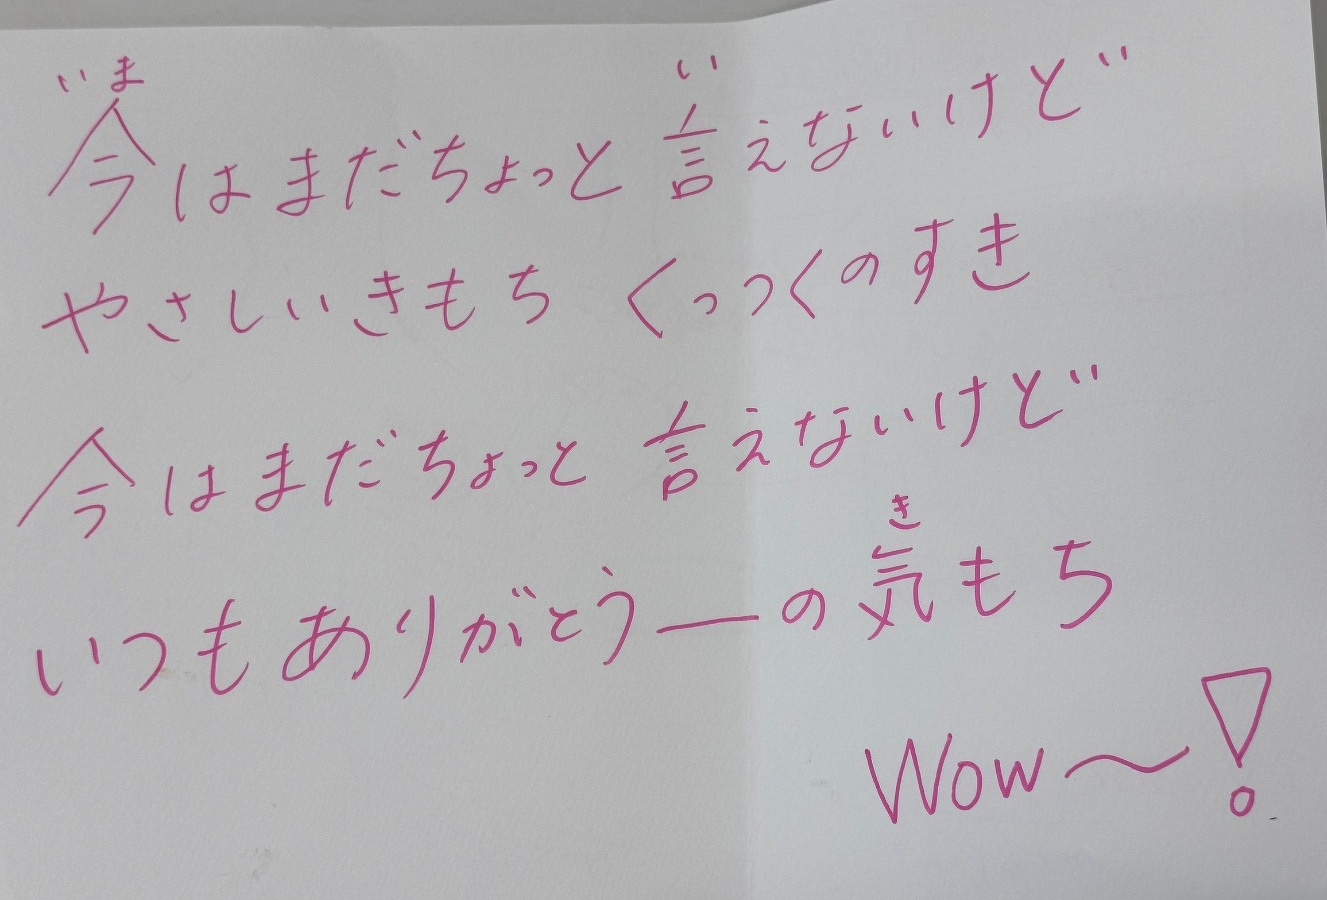 いま い
今はまだちょっと言えないけど
やさしいきもち くっつくのすき
今はまだちょっと言えないけど
き
いつもありがとうーの気もち
Wow〜!